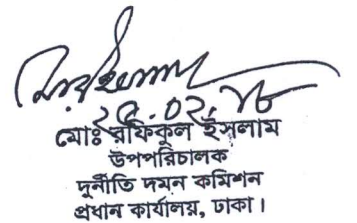 ২৫.০২.১৮
মোঃ রফিকুল ইসলাম
উপপরিচালক
দুর্নীতি দমন কমিশন
প্রধান কার্যালয়, ঢাকা।